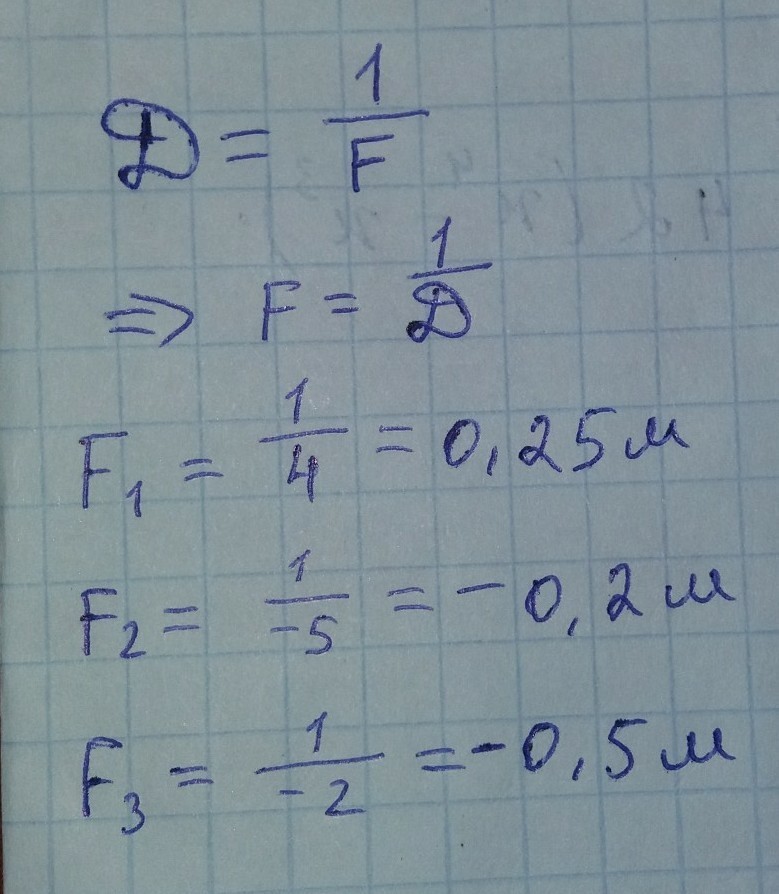 D = 1/F
⇒ F = 1/D
F₁ = 1/4 = 0,25 м
F₂ = 1/-5 = -0,2 м
F₃ = 1/-2 = -0,5 м